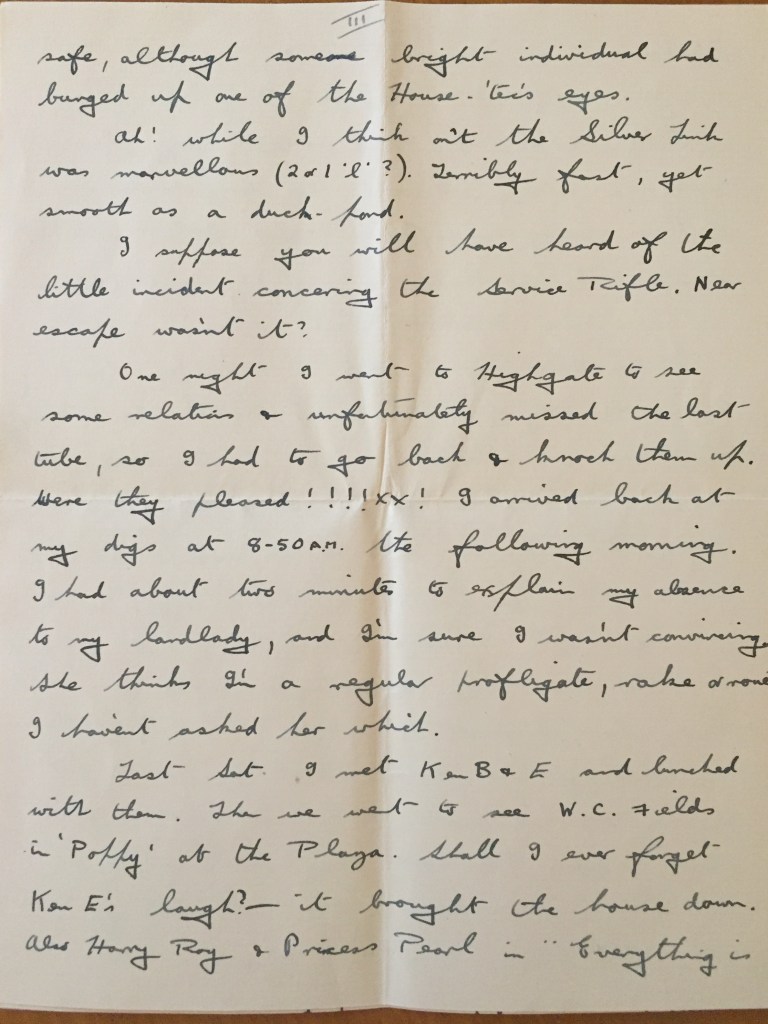 III
safe, although someone bright individual had
bunged up one of the House-'tec's eyes.
Ah! while I think on't the Silver Link
was marvellous (2 or 1 'l'?). Terribly fast, yet
smooth as a duck-pond.
I suppose you will have heard of the
little incident concering the Service Rifle. Near
escape wasn't it?
One night I went to Highgate to see
some relations & unfortunately missed the last
tube, so I had to go back & knock them up.
Were they pleased !!!!xx! I arrived back at
my digs at 8-50 A.M. the following morning.
I had about two minutes to explain my absence
to my landlady, and I'm sure I wasn't convincing.
She thinks I'm a regular profligate, rake or roué
I haven't asked her which.
Last Sat. I met Ken B & E and lunched
with them. The we went to see W.C. Fields
in 'Poppy' at the Plaza. Shall I ever forget
Ken E's laugh? — it brought the house down.
Also Harry Roy & Pricess Pearl in "Everything is